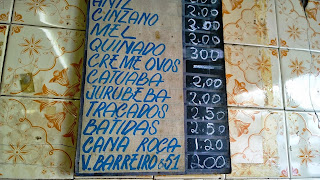 ANIZ 2,00
CINZANO 2.00
MEL 2.00
QUINADO 2.00
CREME OVOS 300
CATUABA 2,00
JURUBEBA 2,00
TRAÇADOS 2.50
BATIDAS 2.50
CANA ROÇA 1.20
V. BARREIRO e 51 200